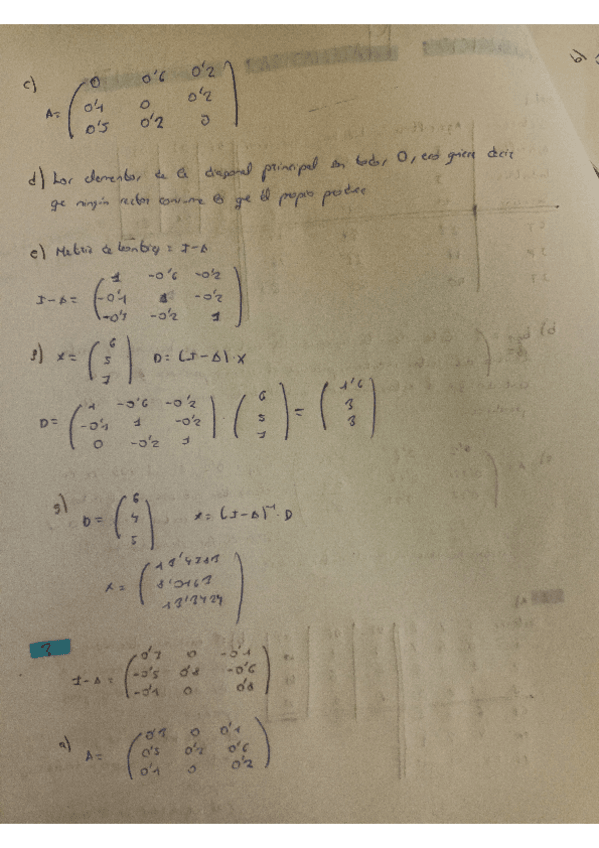 c) A= ( 0 0'6 0'2
0'1 0 0'2
0'5 0'2 0 )
d) Los elementos de la diagonal principal son todos 0, eso quiere decir
que ningún sector consume lo que él propio produce
e) Matriz de Leontief = I-A
I-A= ( 1 -0'6 -0'2
-0'1 1 -0'2
-0'5 -0'2 1 )
f) X= ( 6 5 7 ) D= (I-A)·X
D= ( 1 -0'6 -0'2
-0'1 1 -0'2
0 -0'2 1 ) · ( 6 5 7 ) = ( 1'6 3 3 )
g) D= ( 6 4 5 ) X= (I-A)⁻¹·D
X=
3
I-A= ( 0'7 0 -0'1
-0'5 0'8 -0'6
-0'1 0 0'8 )
a) A= ( 0'3 0 0'1
0'5 0'2 0'6
0'1 0 0'2 )